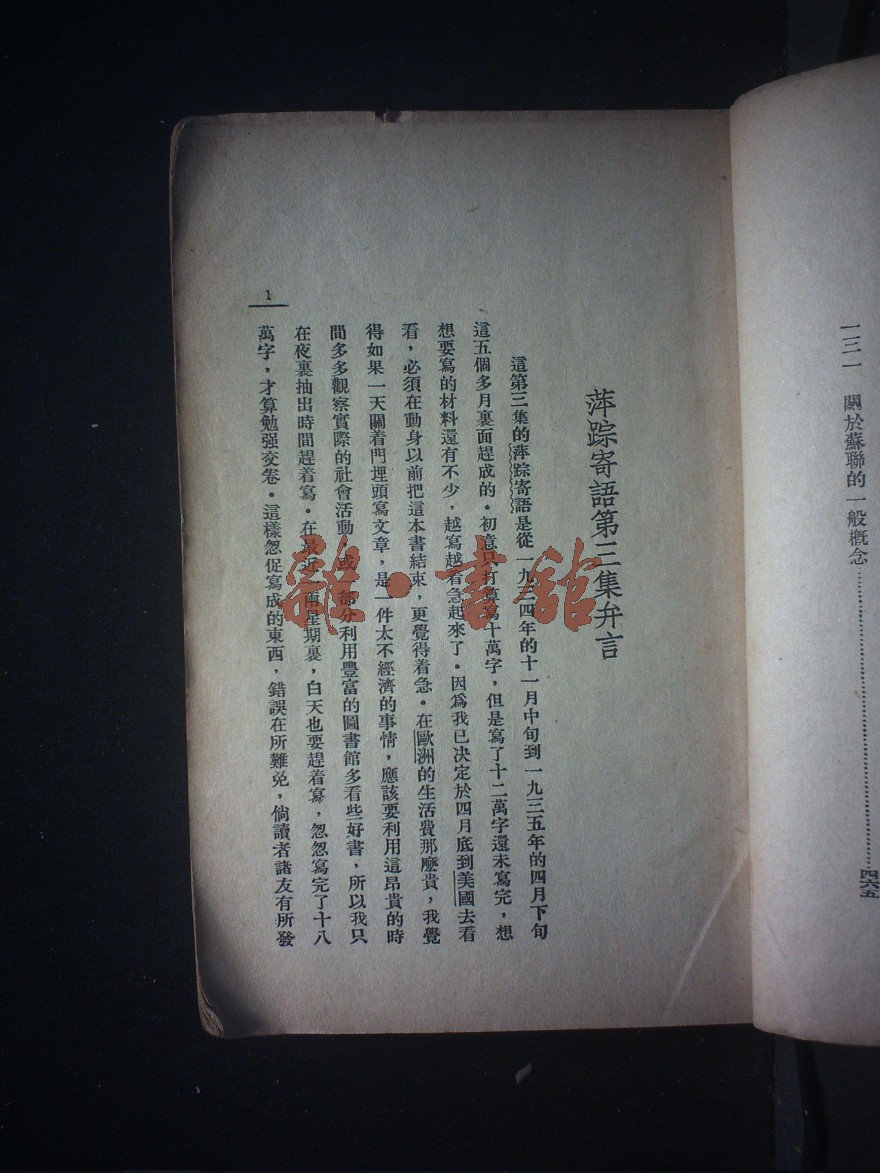 一三一　關於蘇聯的一般概念……………………四六五
萍踪寄語第三集弁言
這第三集的萍踪寄語是從一九三四年的十一月中旬到一九三五年的四月下旬
這五個多月裏面趕成的。初意只打算寫十萬字，但是寫了十二萬字還未寫完，想
想要寫的材料還有不少，越寫越着急起來了。因爲我已決定於四月底到美國去看
看，必須在動身以前把這本書結束，更覺得着急。在歐洲的生活費那麽貴，我覺
得如果一天關着門埋頭寫文章，是一件太不經濟的事情，應該要利用這昂貴的時
間多多觀察實際的社會活動，或一部分利用豐富的圖書館多看些好書，所以我只
在夜裏抽出時間趕着寫。在最近一兩星期裏，白天也要趕着寫，忽忽寫完了十八
萬字，才算勉强交卷。這樣忽促寫成的東西，錯誤在所難免，倘讀者諸友有所發
1
雜·書館